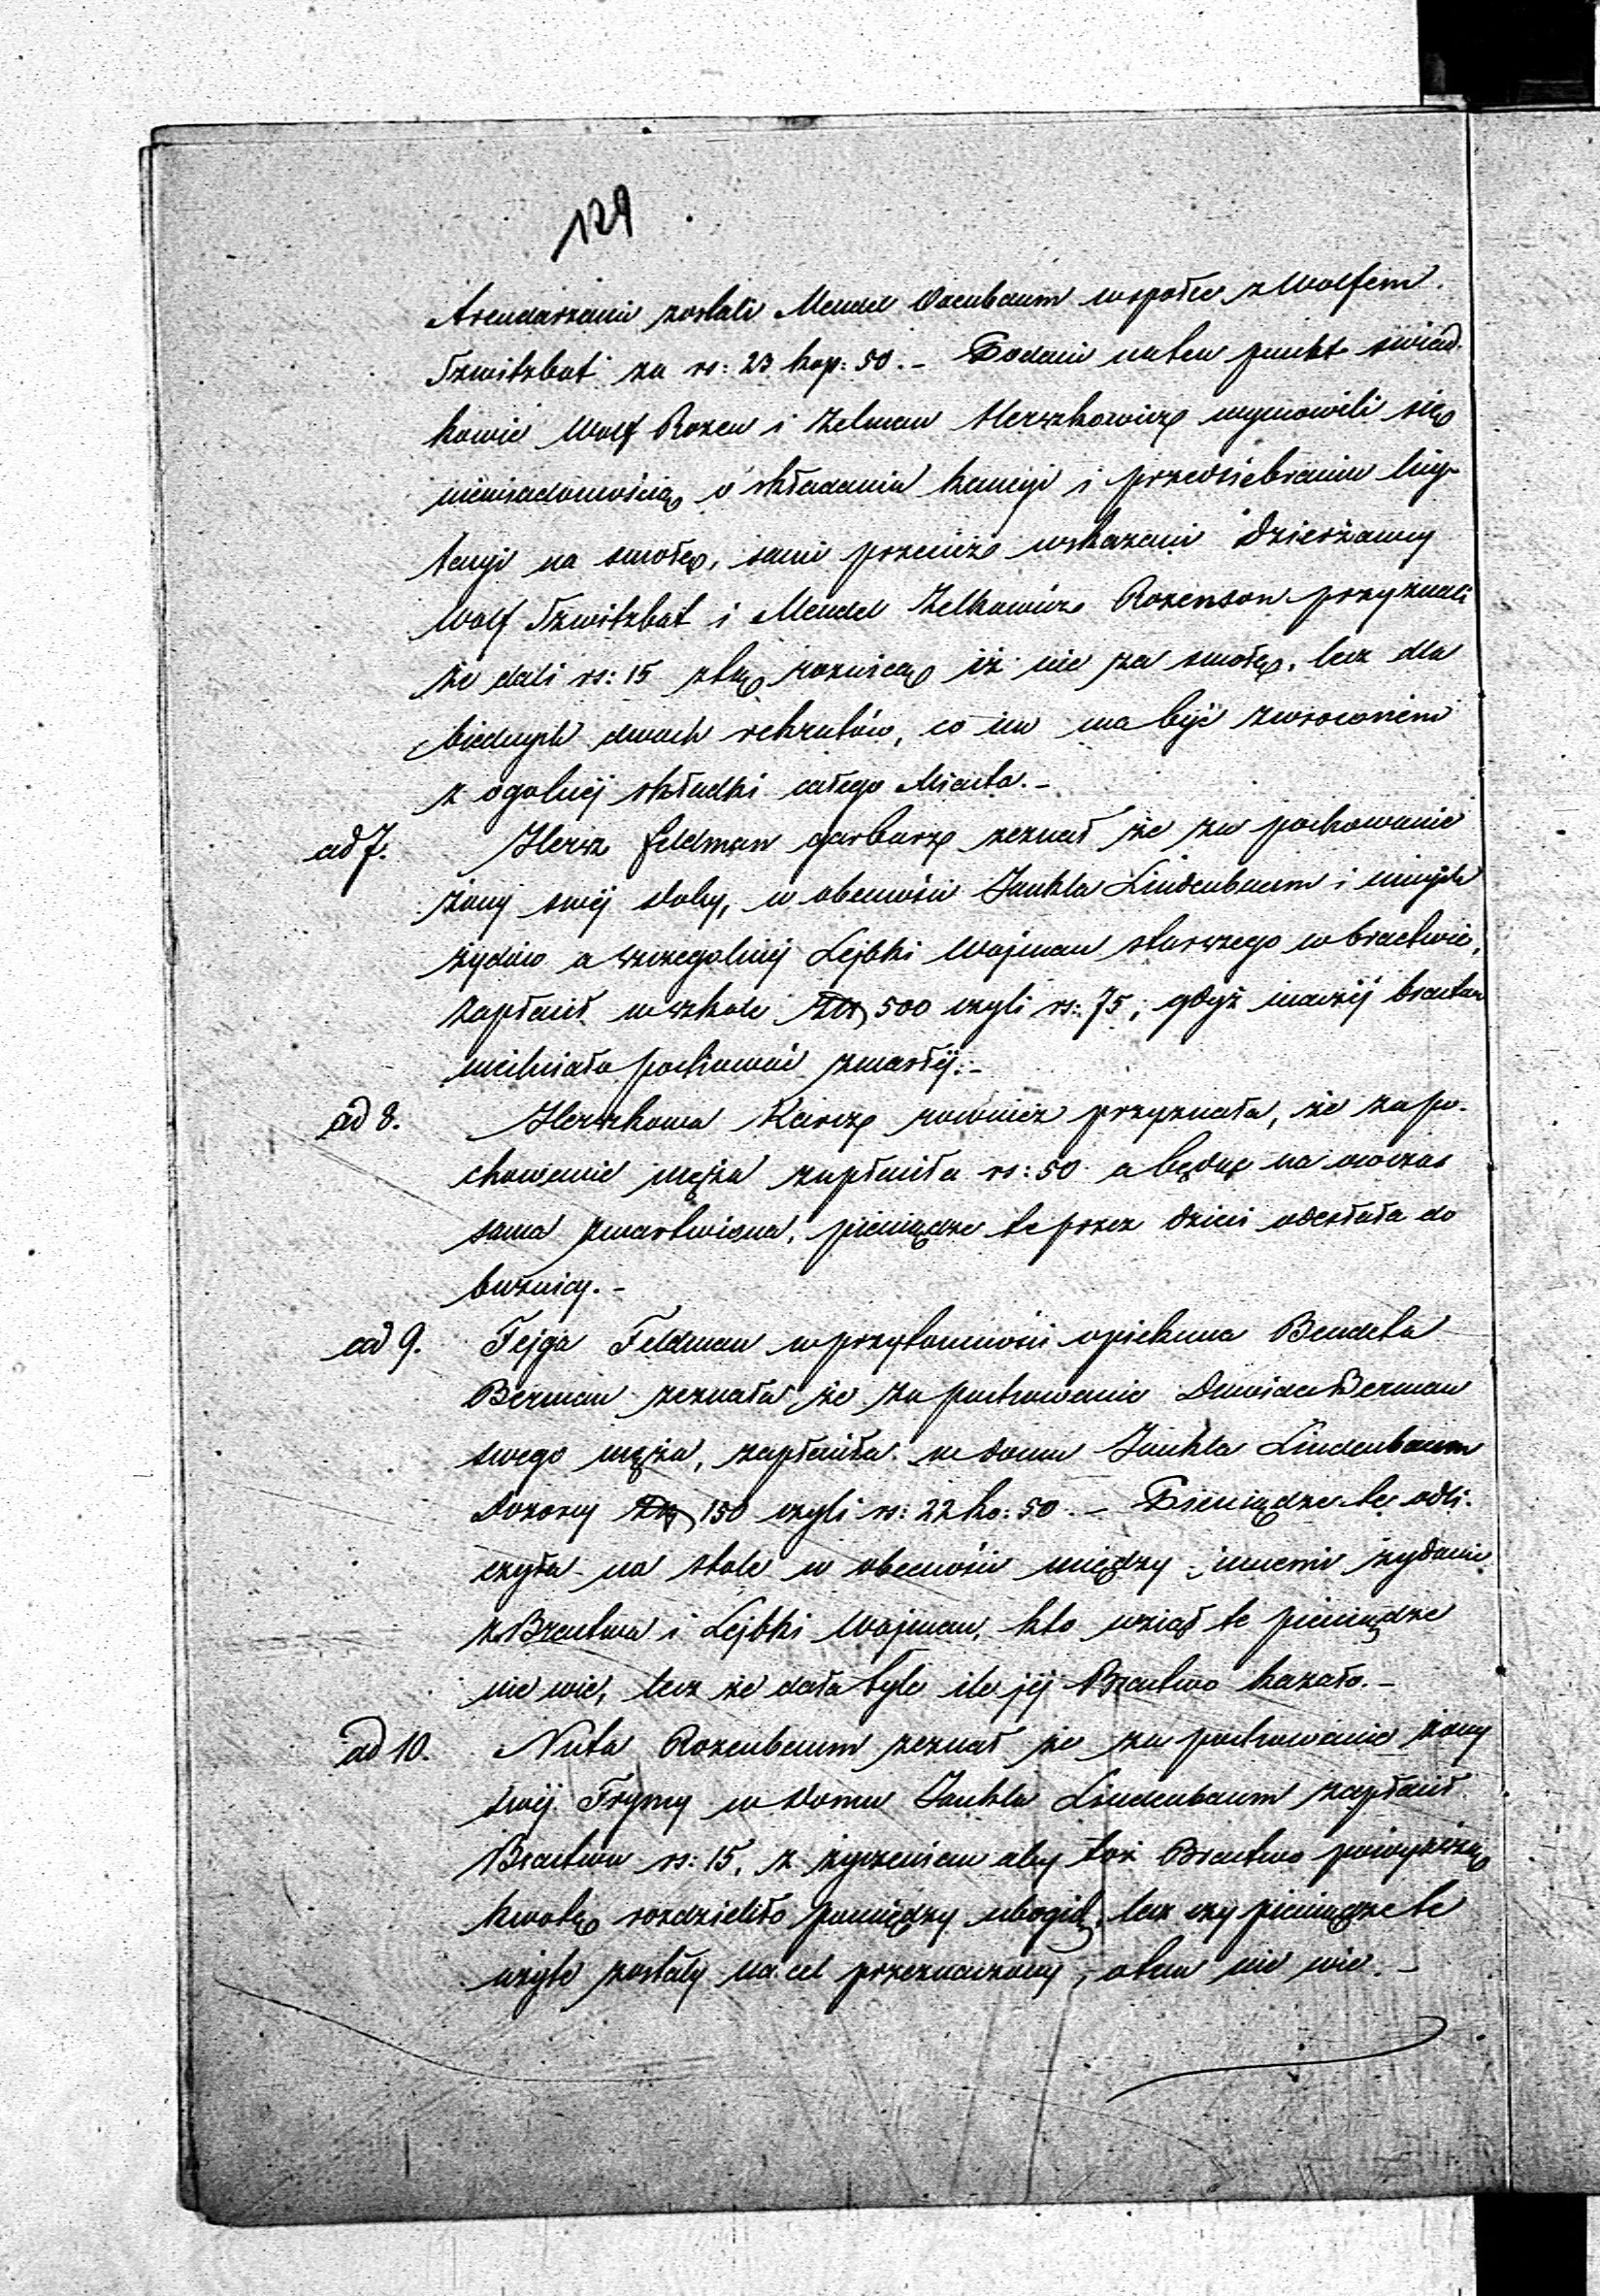 129
Arendarzami zostali Mendel Dacubaum wspołce z Wolfem
Szwitzbat za rs: 23 kop: 50. – Podani na ten punkt świad-
kowie Wolf Rozen i Zelman Herszkowicz wymowili się
niewiadomością o składaniu kaucyi i przedsiebraniu licy-
tacyi na smołę, sami przeciez wskazani Dzierżawcy
Wolf Szwitzbat i Mendel Zelkowicz Rozenson przyznali
że dali rs: 15 z tą roznicą iż nie za smołę, lecz dla
biednych dwoch rekrutów, co im ma być zwroconem
z ogolnej składki całego Miasta. –
ad 7. Hersz Feldman garbarz zeznał że za pochowanie
żony swej Doby, w obecności Jankla Lindenbaum i innych
żydów a szczegolniej Lejbki Wajman starszego w bractwie,
zapłacił w szkole Złp 500 czyli rs: 75, gdyż inaczej bractwo
niechciało pochować zmarłej. –
ad 8. Herszkowa Karcz rownież przyznała, że za po-
chowanie męża zapłaciła rs: 50 a będąc na owczas
sama zmartwiona, pieniądze te przez dzieci odesłała do
bużnicy. –
ad 9. Fejga Feldman w przytomności opiekuna Bendeta
Berman zeznała że za pochowanie Dawida Berman
swego męża, zapłaciła w domu Jankla Lindenbaum
Dozorcy Złp 150 czyli rs: 22 ko: 50. – Pieniądze te odli-
czyła na stole w obecności między innemi żydami
z Bractwa i Lejbki Wajman, kto wziął te pieniądze
nie wie, lecz że dała tyle ile jéj Bractwo kazało. –
ad 10. Nuta Rozenbaum zeznał że za pochowanie żony
swéj Frymy w domu Jankla Lindenbaum zapłacił
Bractwu rs: 15, z życzeniem aby toż Bractwo powyższą
kwotę rozdzieliło pomiędzy ubogich, lecz czy pieniądze te
użyte zostały na cel przeznaczony, o tem nie wie. –